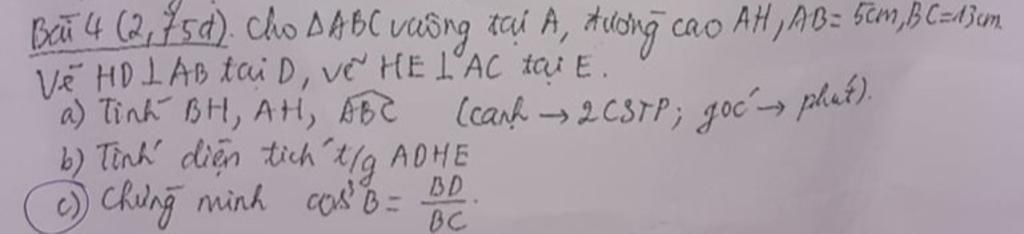 Bài 4 (2,75đ). Cho ΔABC vuông tại A, đường cao AH, AB = 5cm, BC = 13cm.
Vẽ HD ⊥ AB tại D, vẽ HE ⊥ AC tại E.
a) Tính BH, AH, \widehat{ABC} (cạnh → 2CSTP; góc → phút).
b) Tính diện tích t/g ADHE
c) Chứng minh cos³B = BD/BC.